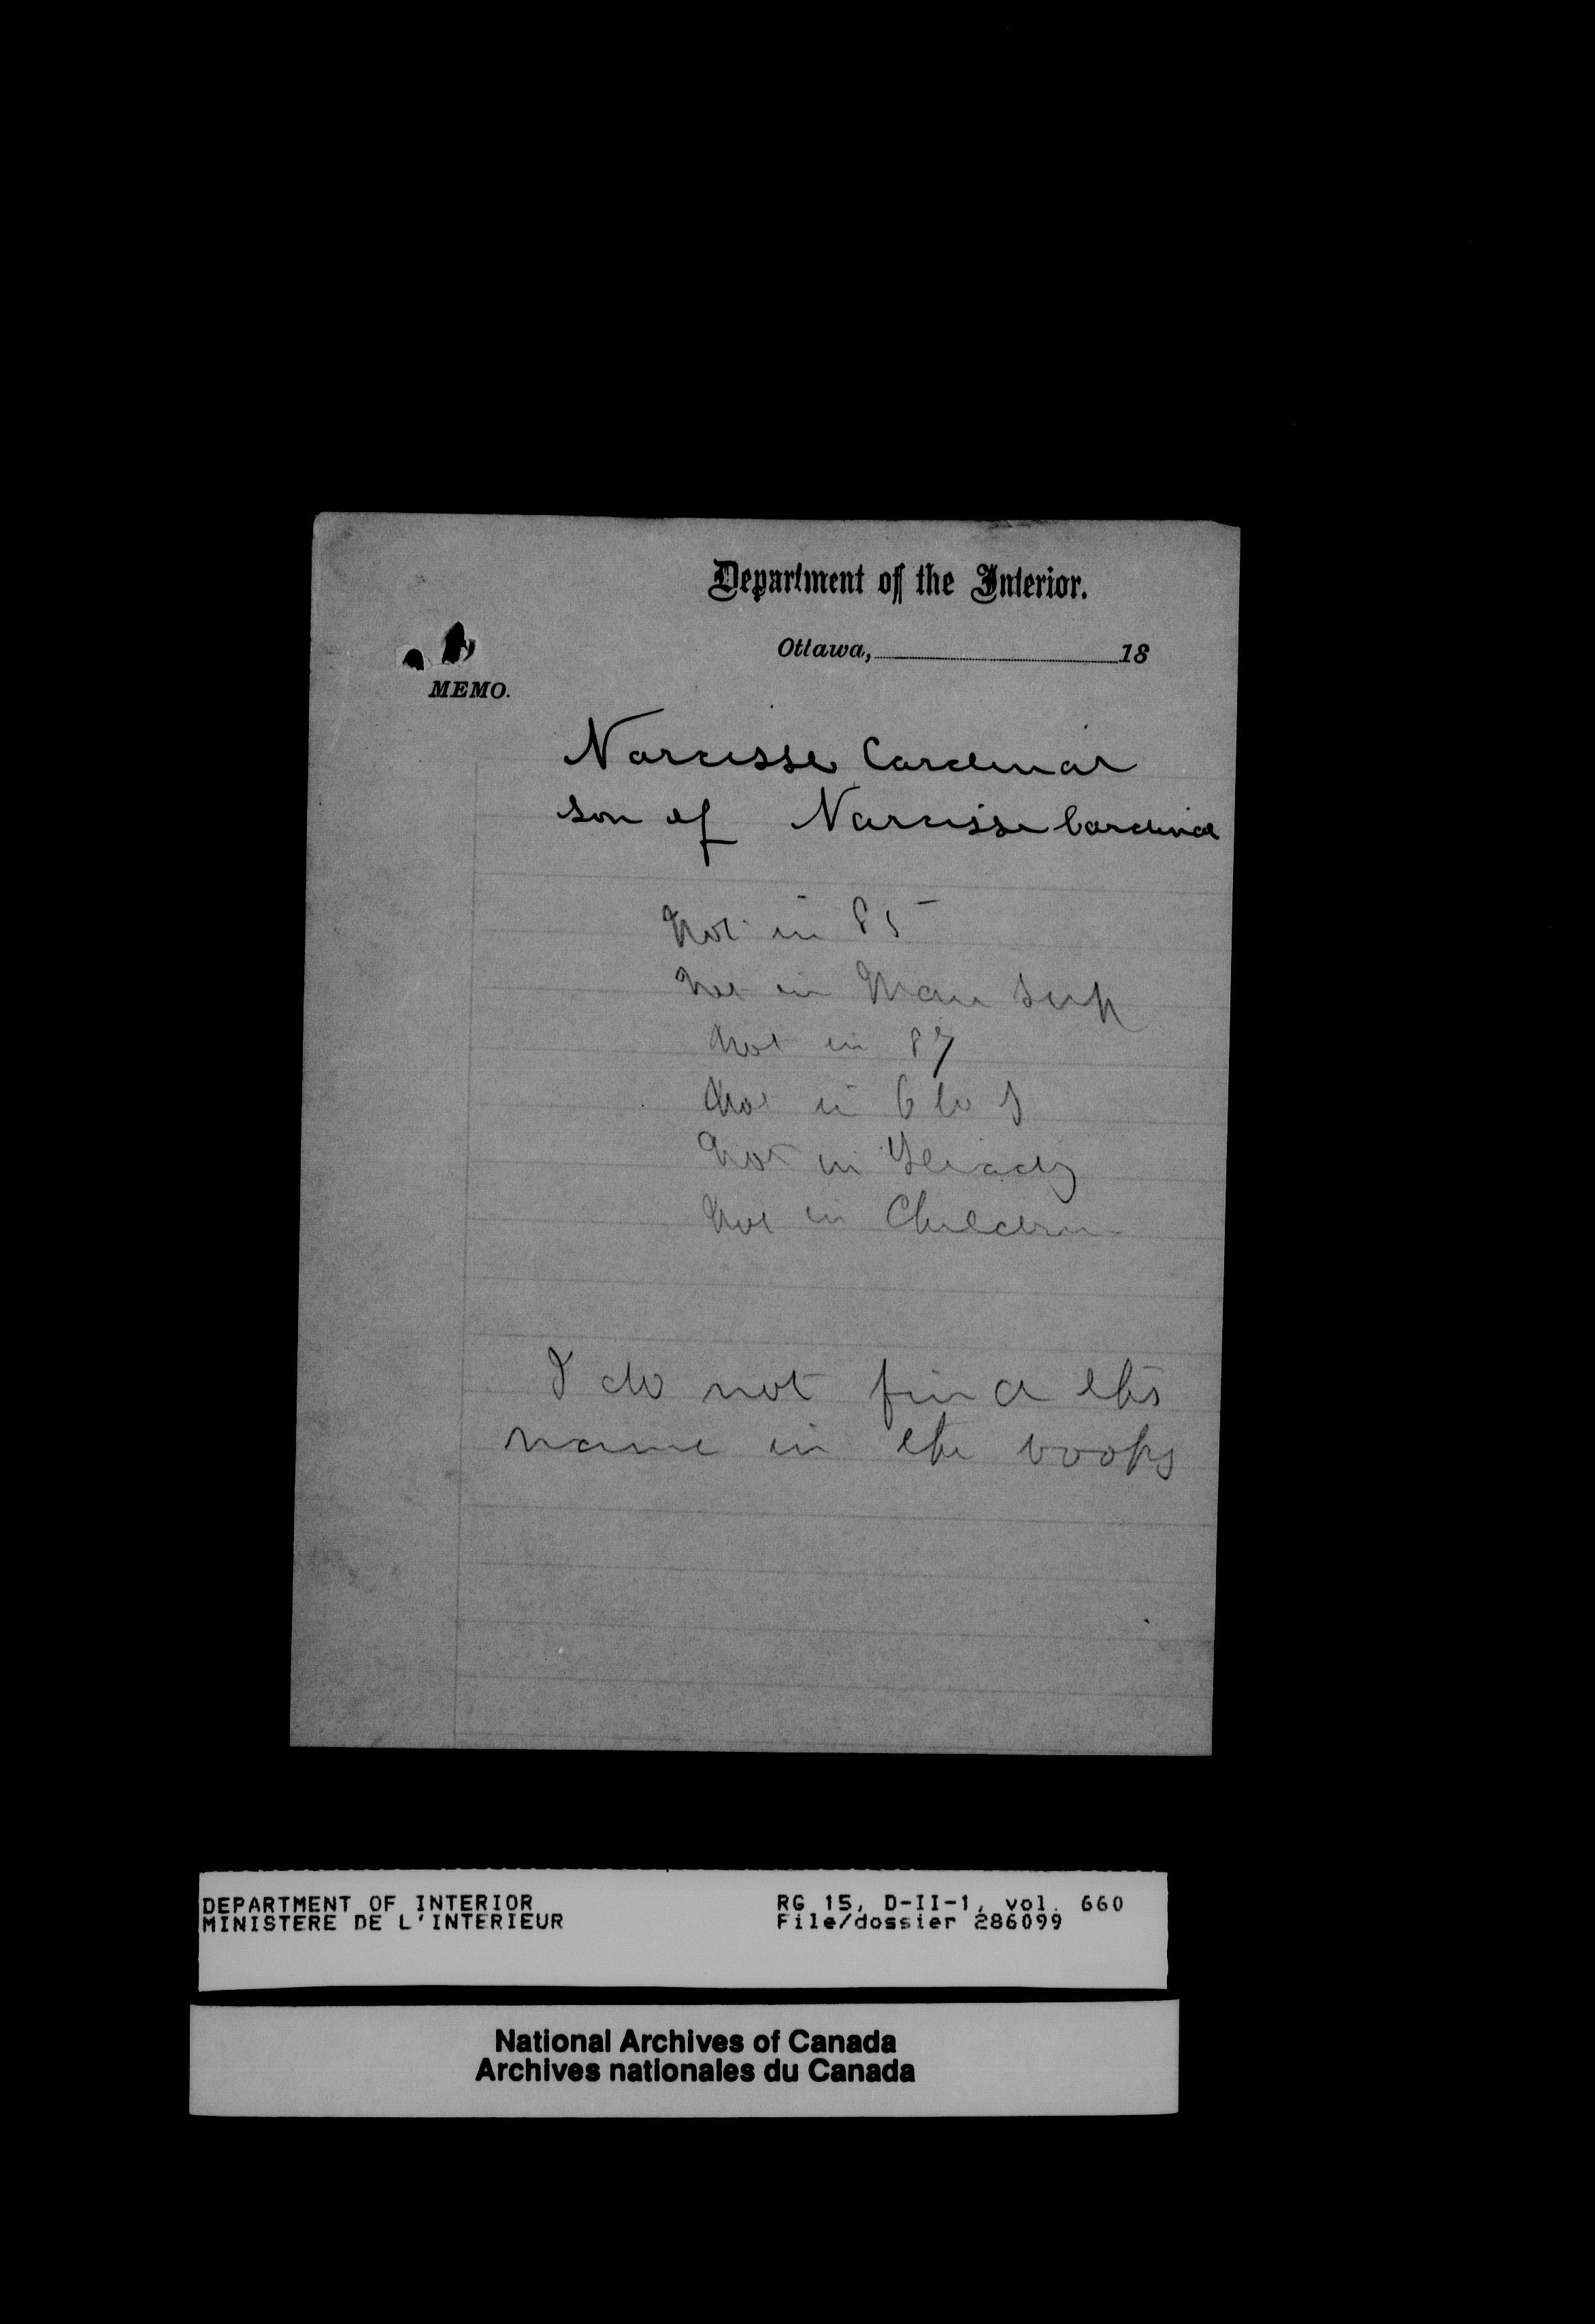 Department of the Interior.
Ottawa, 18
MEMO.
Narcisse Cardinal
son of Narcisse Cardinal
Not in 85
Not in Man Supp
Not in 87
Not in
Not in
Not in Children
I do not find this
name in the books
DEPARTMENT OF INTERIOR
MINISTERE DE L'INTERIEUR
RG 15, D-II-1, vol. 660
File/dossier 286099
National Archives of Canada
Archives nationales du Canada